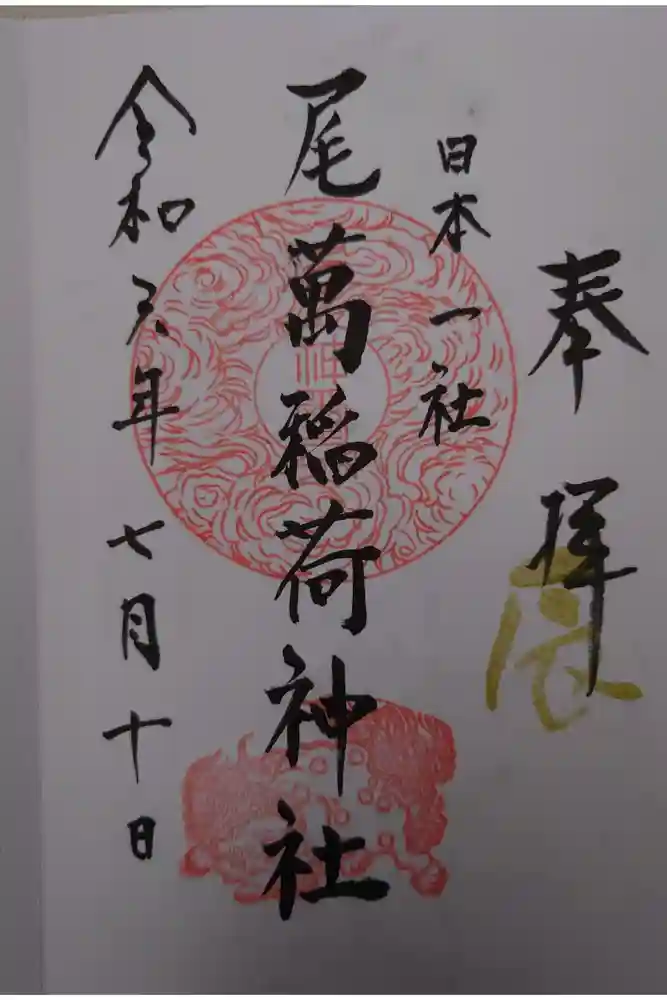 奉拝
辰
日本一社
尾萬稲荷神社
令和六年 七月十日